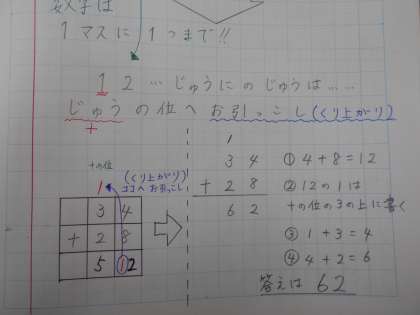 数字は
1マスに1つまで!!
1 2 … じゅうにのじゅうは……
じゅうの位へお引っこし(くり上がり)
十
十の位
(くり上がり)
ココへお引っこし
1
3 4
+ 2 8
5 12
1
3 4
+ 2 8
6 2
① 4+8=12
② 12の1は
十の位の3の上に書く
③ 1+3=4
④ 4+2=6
答えは 62